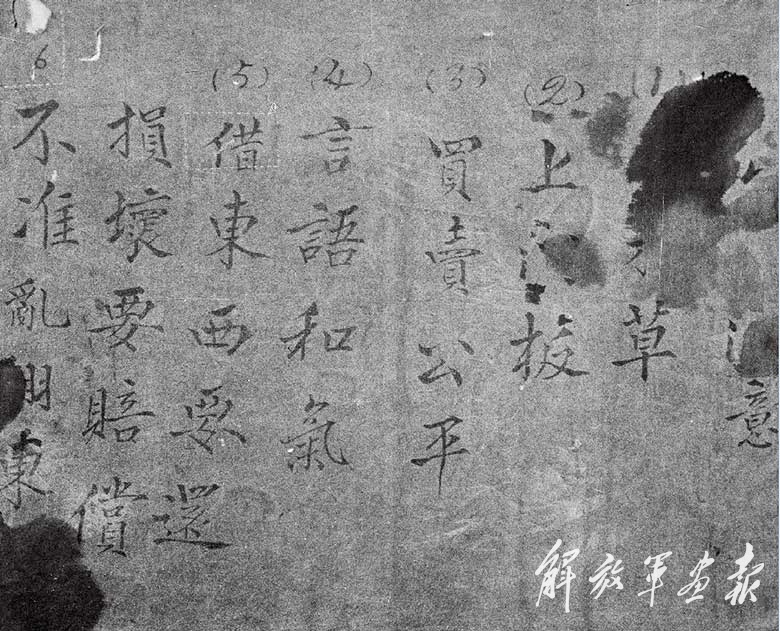 意
(1) 草
(2) 上 板
(3) 買賣公平
(4) 言語和氣
(5) 借東西要還
損壞要賠償
6 不准亂 東
解放軍画报